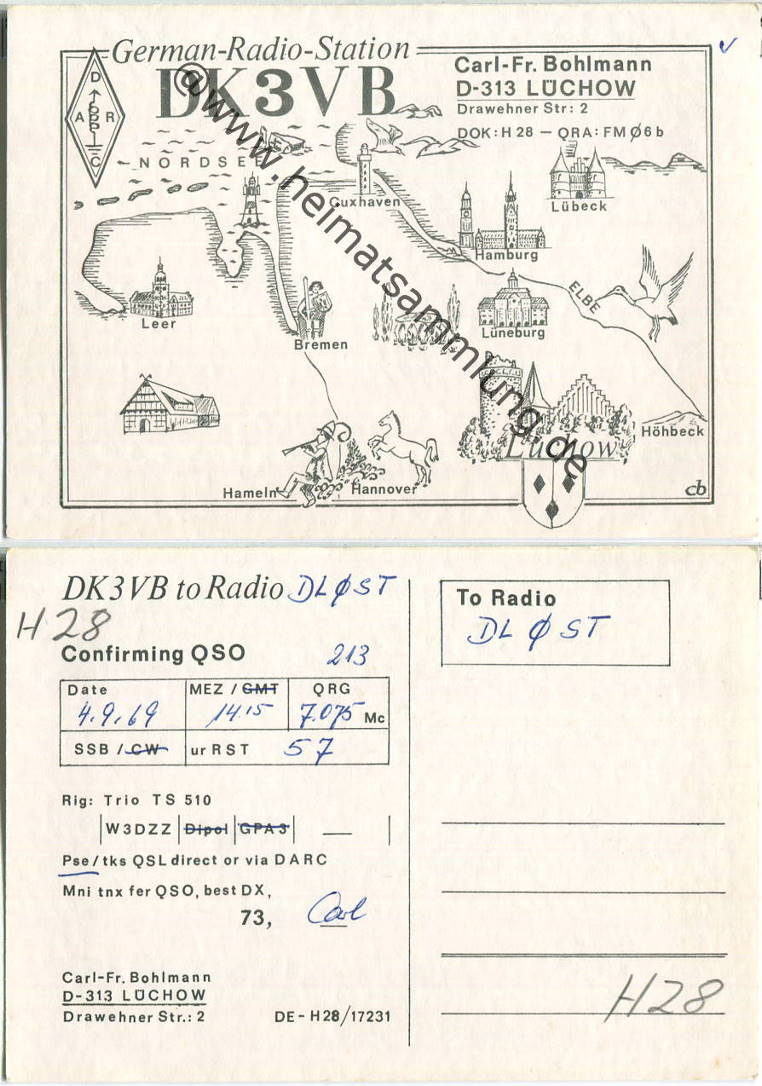 German-Radio-Station
DK3VB
Carl-Fr. Bohlmann
D-313 LÜCHOW
Drawehner Str: 2
DOK: H 28 — QRA: FM Ø6 b
D
A R
C
NORDSEE
Cuxhaven
Lübeck
Hamburg
ELBE
Leer
Bremen
Lüneburg
Lüchow
Höhbeck
Hameln
Hannover
cb
@www.heimatsammlung.de
DK3VB to Radio DLØST
H28
Confirming QSO 213
To Radio
DLØST
Date MEZ / GMT QRG
4.9.69 14.15 7.075 Mc
SSB / CW ur RST 57
Rig: Trio TS 510
W3DZZ Dipol GPA3 —
Pse/tks QSL direct or via DARC
Mni tnx fer QSO, best DX,
73, Carl
Carl-Fr. Bohlmann
D-313 LÜCHOW
Drawehner Str.: 2 DE-H28/17231
H28